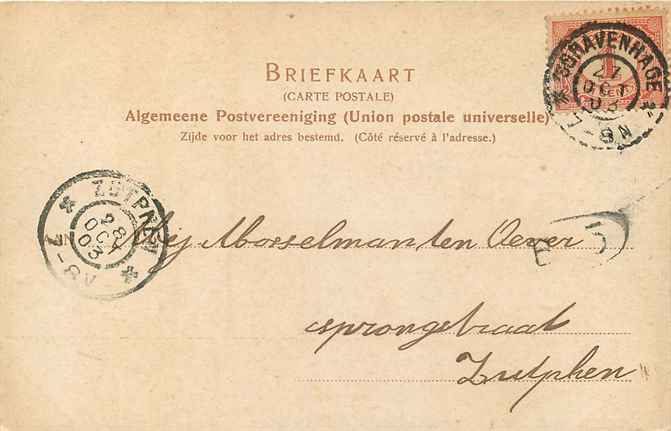 'SGRAVENHAGE
27
OCT
03
7-8N
1
BRIEFKAART
(CARTE POSTALE)
Algemeene Postvereeniging (Union postale universelle)
Zijde voor het adres bestemd. (Côté réservé à l'adresse.)
ZUTPHEN
28
OCT
03
Mej Mosselman ten Oever
sprongstraat
Zutphen